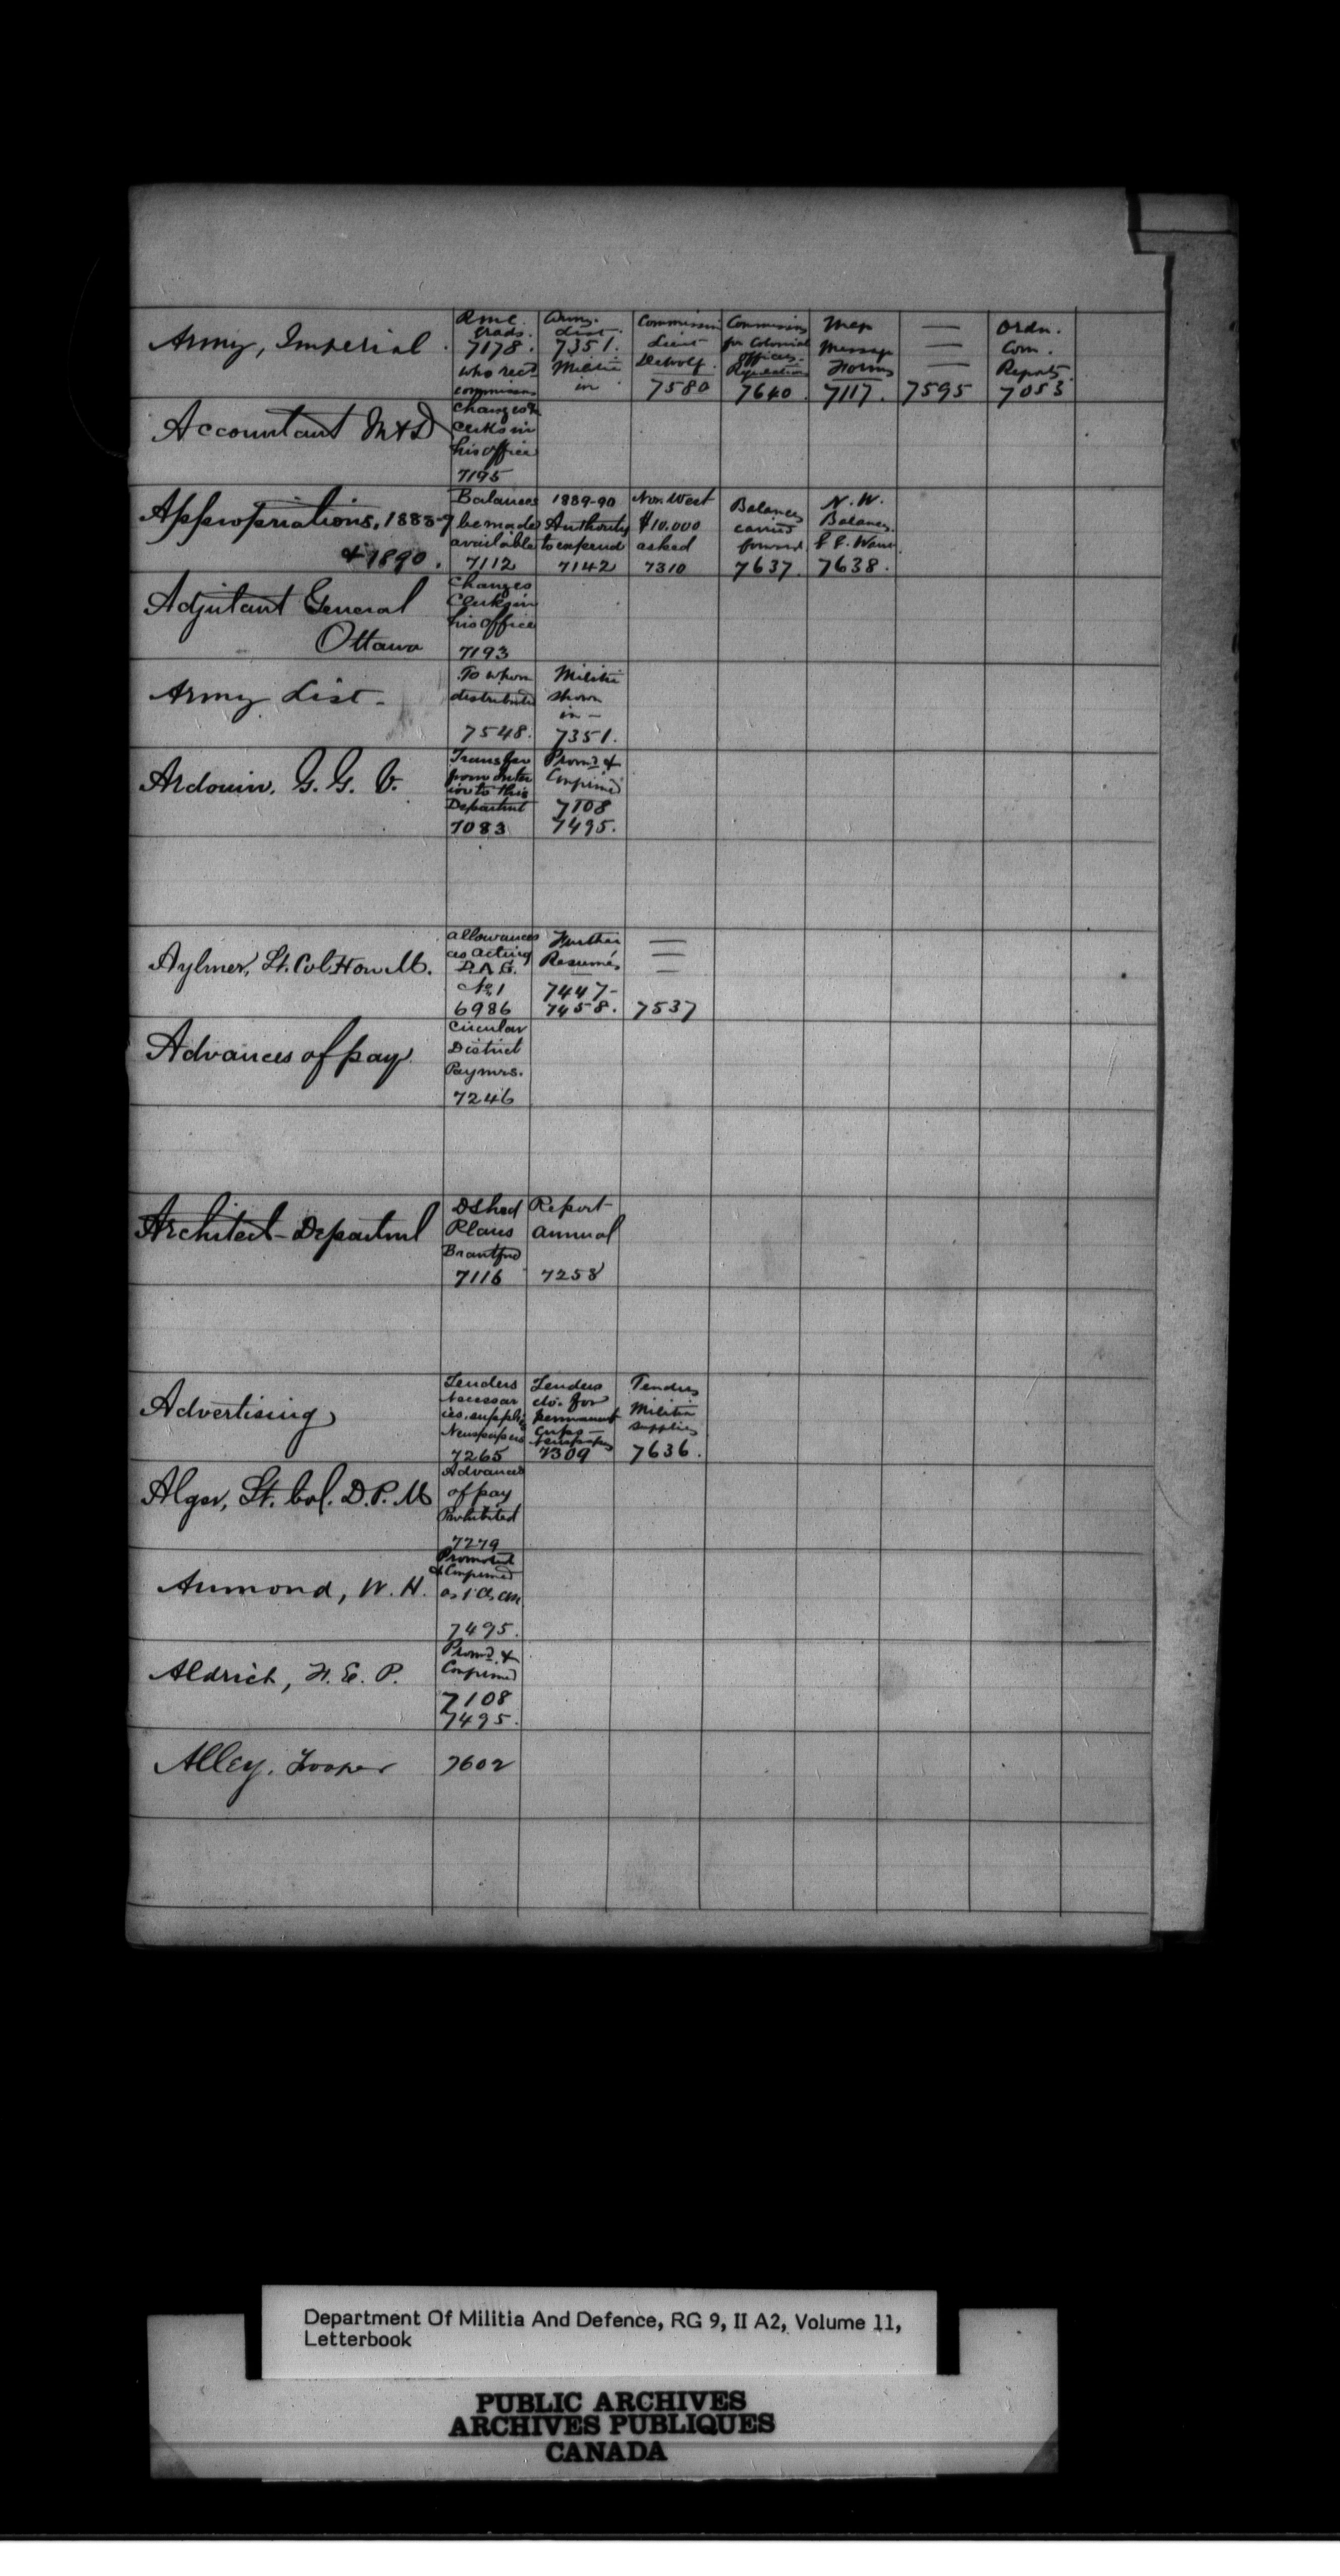 Army, Imperial.
R.M.C. Grads. 7178. who recd commissions
Army List. 7351. Militia in
Commission Lieut DeWolf. 7580
Commissions for Colonial Officers. Regulations 7640.
Map Message Forms 7117.
— — — 7595
Ordn. Com. Reports. 7053
Accountant M & D
Changes Clerks in his office 7195
Appropriations, 1888-9
& 1890.
Balances be made available 7112
1889-90 Authority to expend 7142
Nor. West $10.000 asked 7310
Balances carried forward 7637.
N. W. Balances 7638.
Adjutant General
Ottawa
Changes Clerks in his office 7193
Army List -
To whom distributed 7548.
Militia shown in — 7351.
Ardouin. G. G. V.
Transfer from Interior to this Department 7083
Promd & Confirmed 7108 7495.
Aylmer, Lt. Col. Hon M.
allowances as acting D.A.G. No 1 6986
Further Resumés 7447- 7458.
— — — 7537
Advances of pay.
Circular District Paymrs. 7246
Architect - Departml
D Shed Plans Brantford 7116
Report annual 7258
Advertising
Tenders Necessaries, supplies Newspapers 7265
Tenders do. for permanent Corps — Newspapers 7309
Tenders Militia supplies 7636.
Alger, Lt. Col. D. P. M
Advances of pay Prohibited 7279
Aumond, W. H.
Promoted & Confirmed as 1 Cl. 7495.
Aldrich, H. E. P.
Promd. & Confirmed 7108 7495.
Alley. Trooper
7602
Department Of Militia And Defence, RG 9, II A2, Volume 11,
Letterbook
PUBLIC ARCHIVES
ARCHIVES PUBLIQUES
CANADA